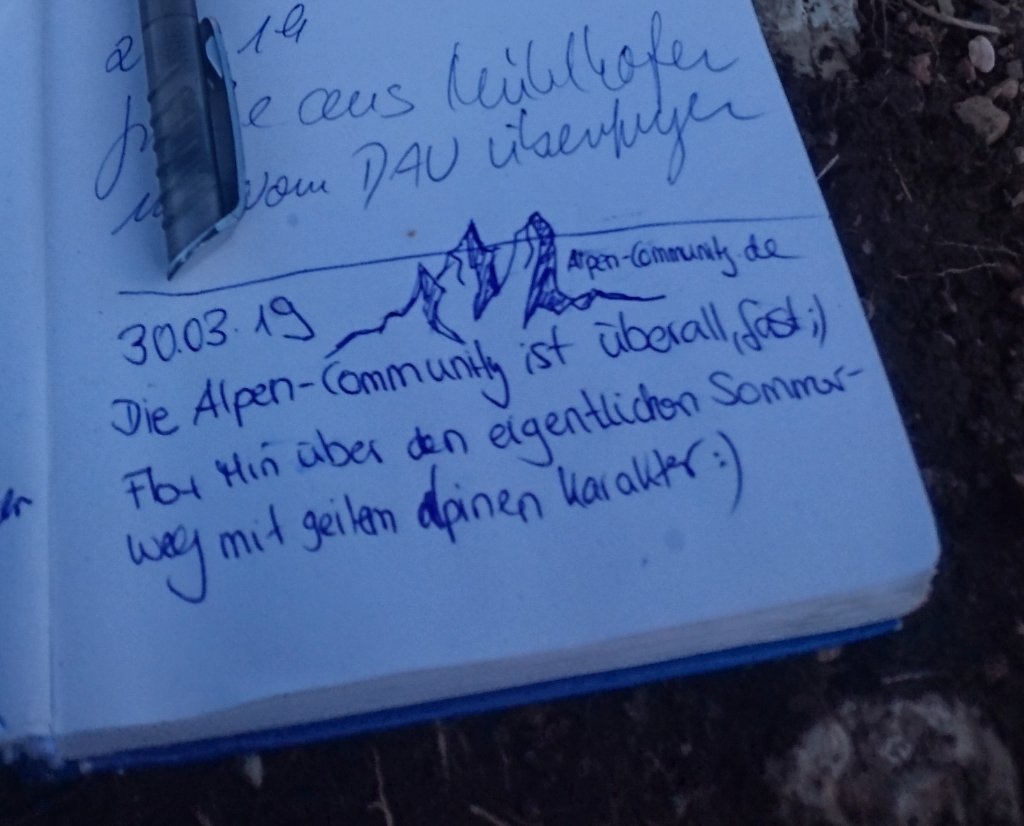 19
aus Mühlhofen
vom DAV
Alpen-Community.de
30.03.19
Die Alpen-Community ist überall, fast ;)
über den eigentlichen Sommer-
weg mit geilem alpinen Karakter :)